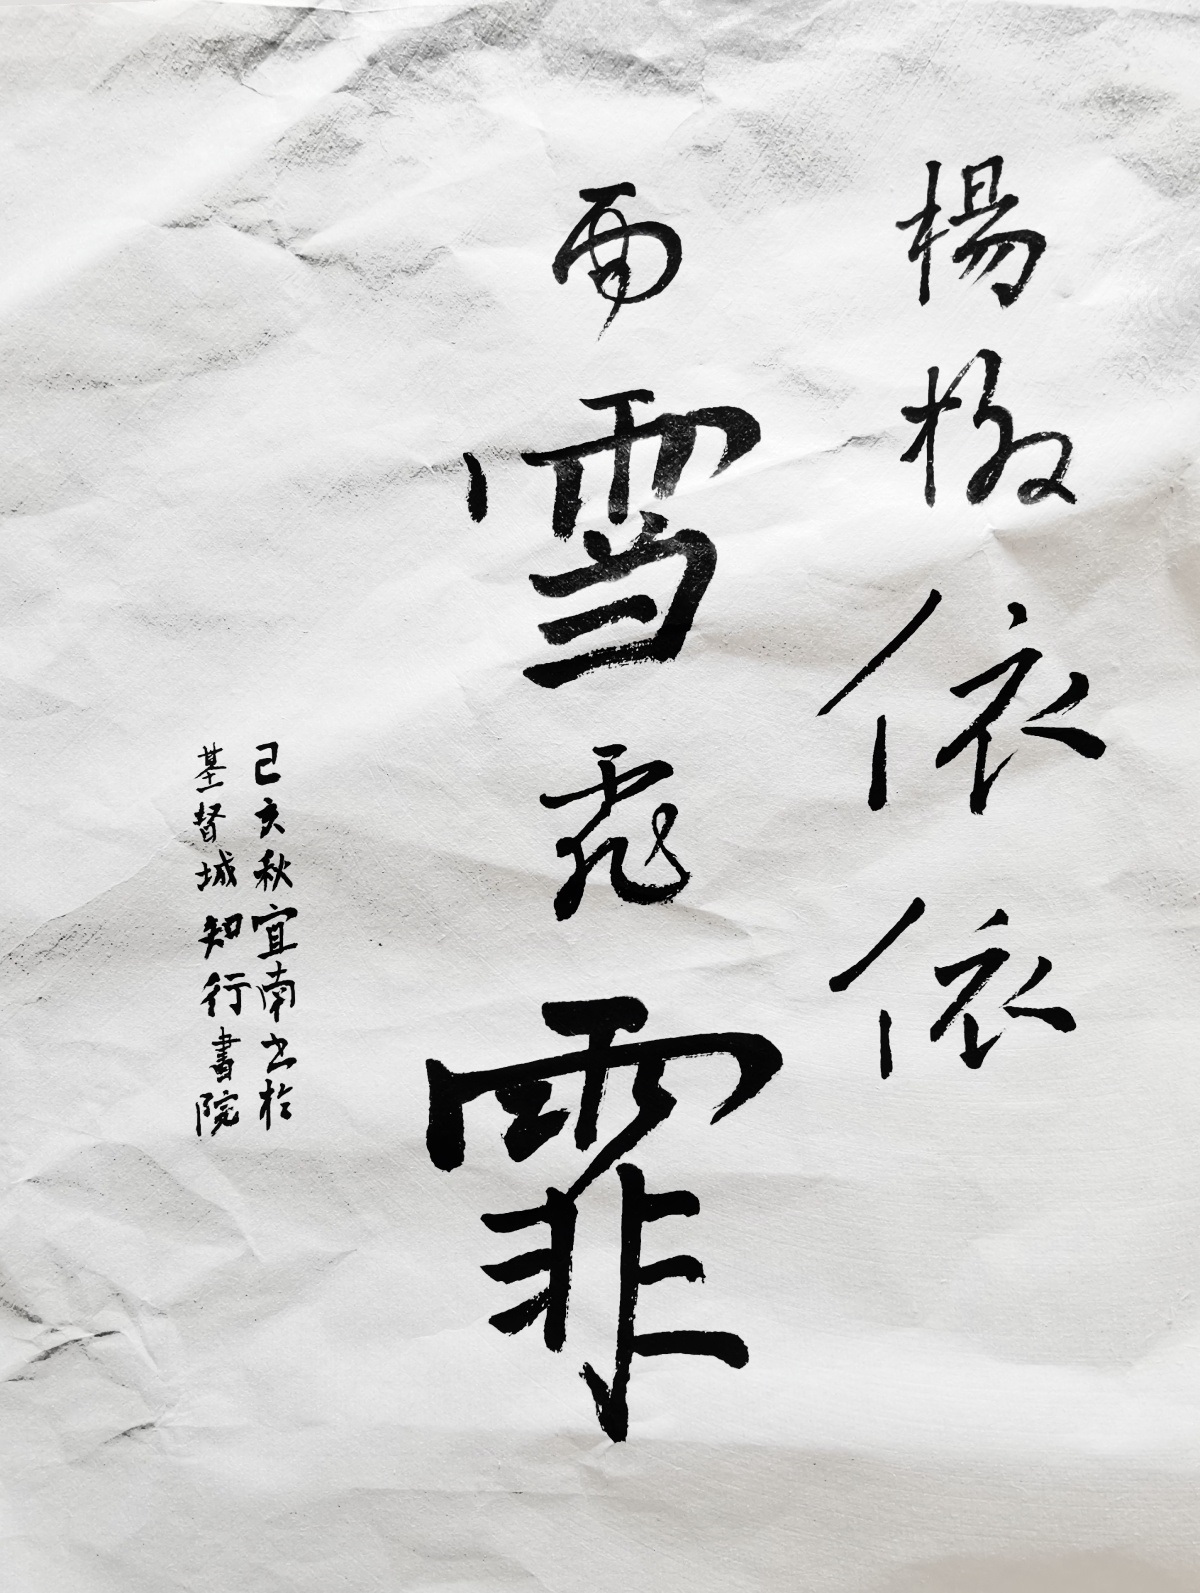 楊柳依依
雨雪霏霏
己亥秋宜南书於
基督城知行書院